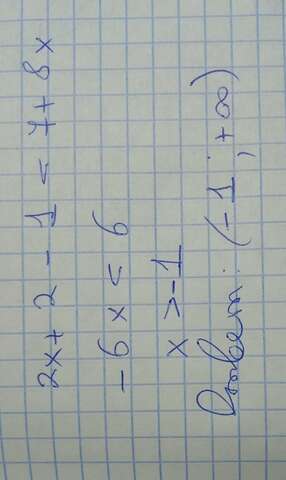 2x + 2 - 1 < 7 + 8x
-6x < 6
x > -1
Ответ: (-1; +∞)